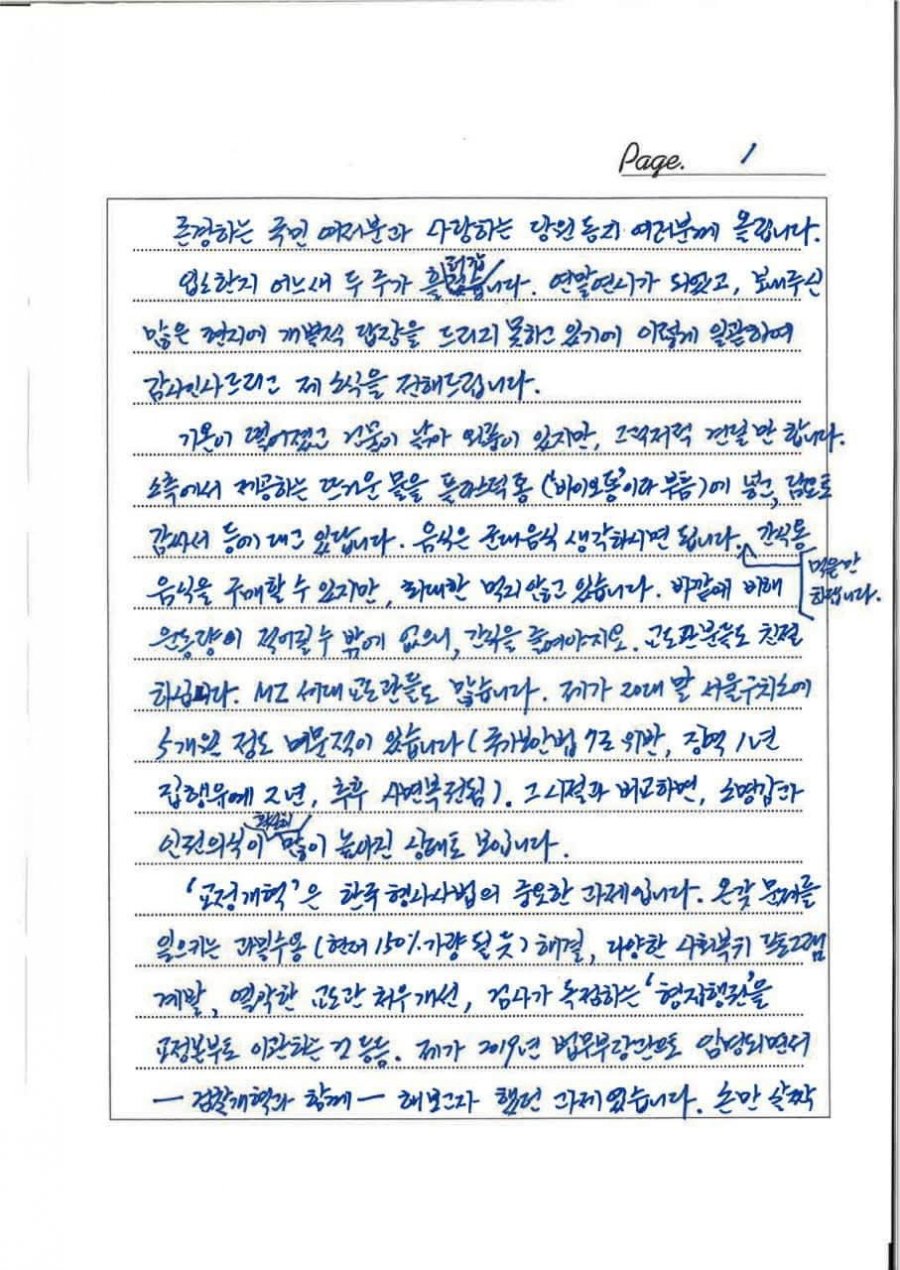 Page. 1
존경하는 국민 여러분과 사랑하는 당원동지 여러분께 올립니다.
입소한지 어느새 두 주가 흘러갑니다. 연말연시가 되었고, 보내주신
많은 편지에 개별적 답장을 드리지 못하고 있기에 이렇게 일괄하여
감사인사드리고 제 소식을 전해드립니다.
기온이 떨어졌고 건물이 낡아 외풍이 있지만, 그럭저럭 견딜만 합니다.
소측에서 제공하는 뜨거운 물을 플라스틱통('바이오통'이라 부름)에 넣고, 담요로
감싸서 등에 대고 있답니다. 음식은 군대음식 생각하시면 됩니다. 먹을만 하답니다. 간식용
음식을 구매할 수 있지만, 최대한 먹지 않고 있습니다. 바깥에 비해
운동량이 적어질 수 밖에 없으니, 간식을 줄여야지요. 교도관분들도 친절
하십니다. MZ 세대 교도관들도 많습니다. 제가 20대 말 서울구치소에
5개월 정도 머문적이 있습니다(국가보안법 7조 위반, 징역 1년
집행유예 2년, 추후 사면복권됨). 그 시절과 비교하면, 소명감과
인권의식이 확실히 많이 높아진 상태로 보입니다.
'교정개혁'은 한국형사사법의 중요한 과제입니다. 온갖 문제를
일으키는 과밀수용(현재 150%가량 될 듯) 해결, 다양한 사회복귀 프로그램
계발, 열악한 교도관 처우개선, 검사가 독점하는 '형집행권'을
교정본부로 이관하는 것 등등. 제가 2019년 법무부장관으로 임명되면서
— 검찰개혁과 함께 — 해보고자 했던 과제였습니다. 손만 살짝